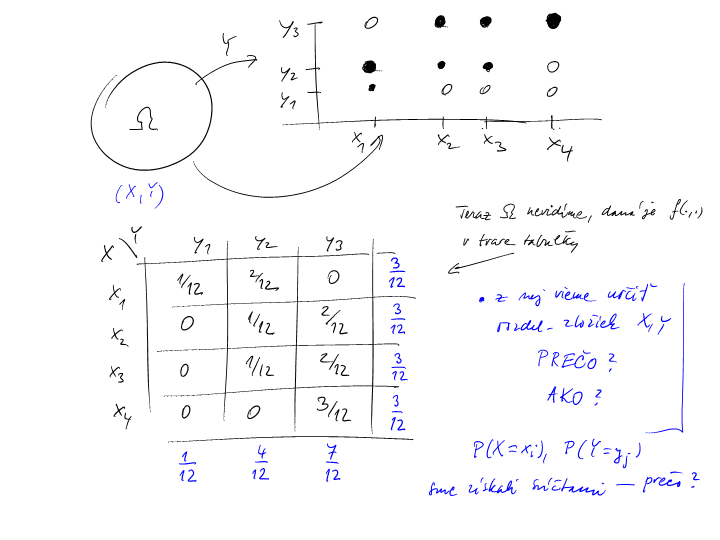 Y
y3
y2
y1
Ω
x1 x2 x3 x4
(X,Y)
Teraz Ω nevidíme, daná je f(.,.)
v tvare tabuľky
X \ Y y1 y2 y3
x1 1/12 2/12 0 3/12
x2 0 1/12 2/12 3/12
x3 0 1/12 2/12 3/12
x4 0 0 3/12 3/12
1/12 4/12 7/12
• z nej vieme určiť
rozdel. zložiek X,Y
PREČO?
AKO?
P(X=xi), P(Y=yj)
sme získali sčítami — prečo?